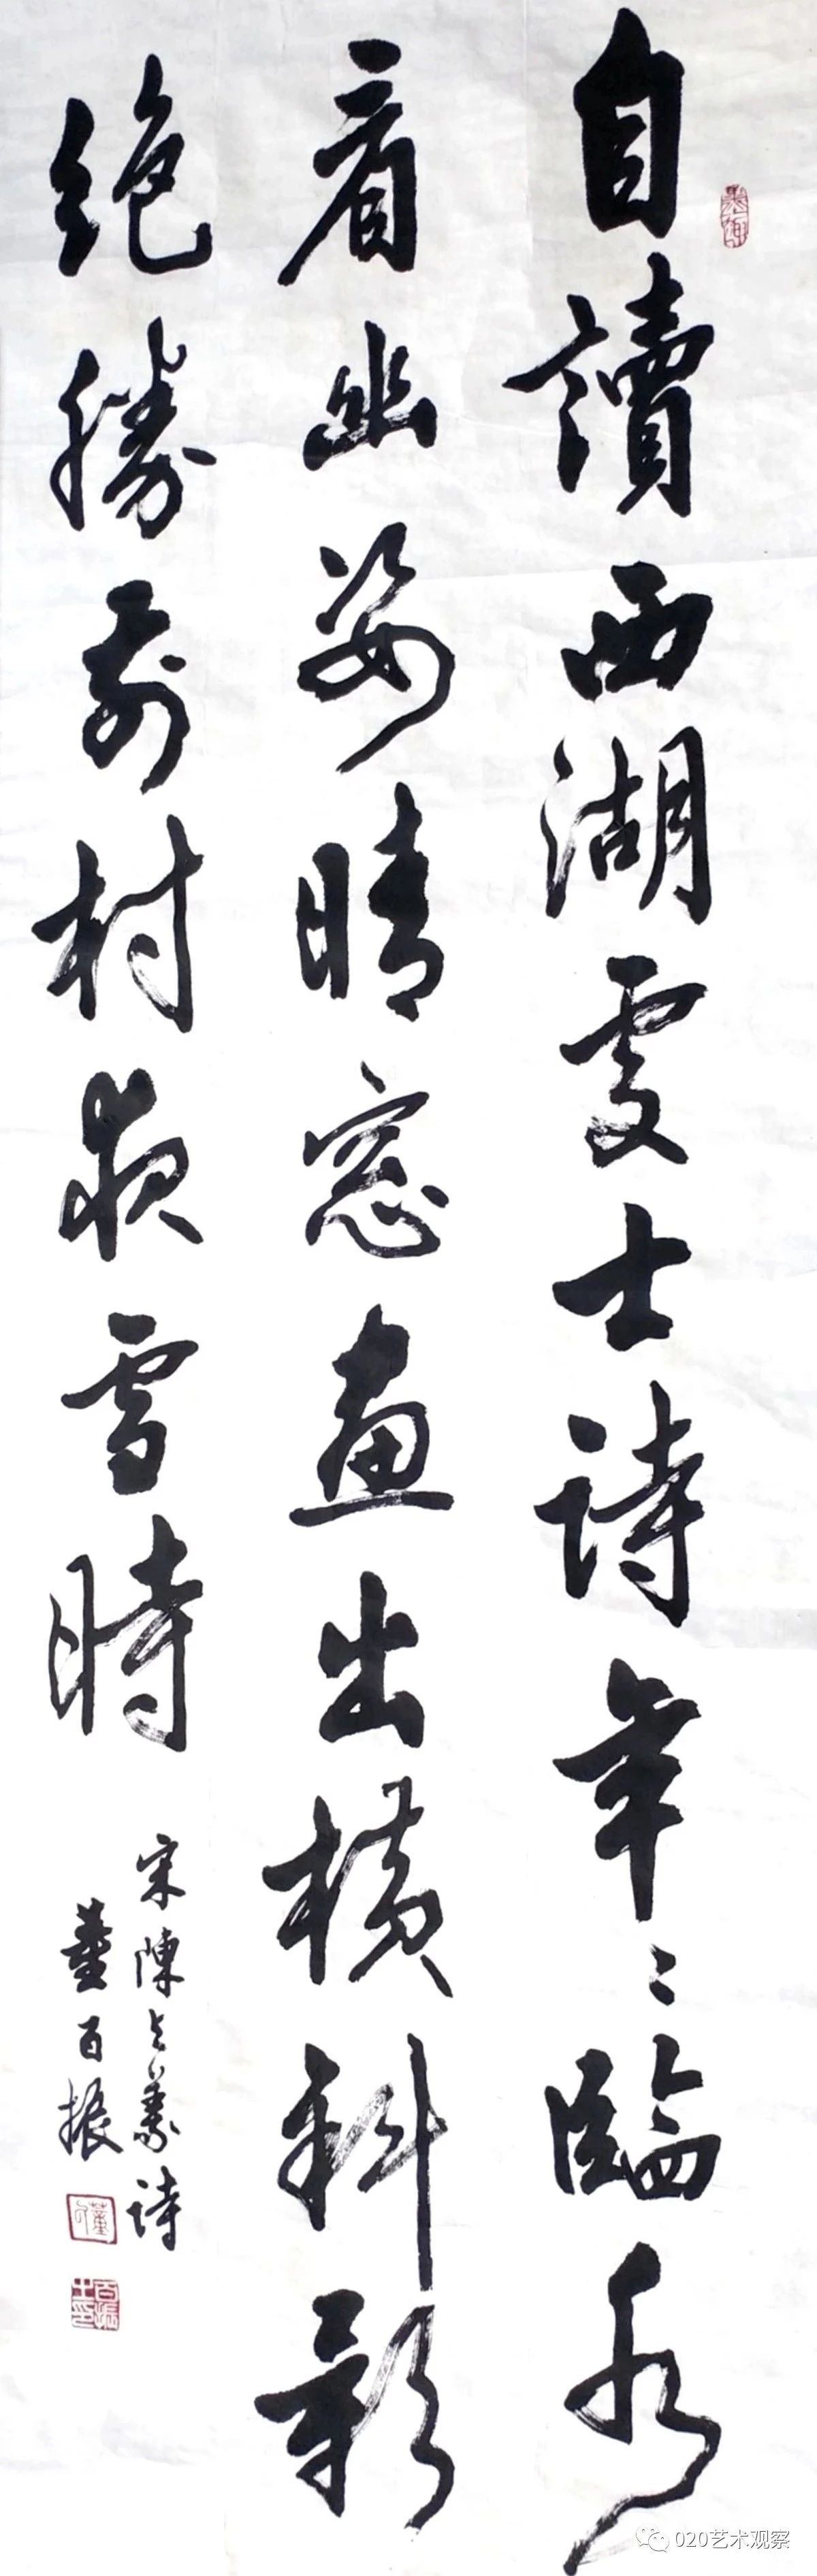 自讀西湖處士詩年〻臨水
看幽姿晴窓畫出橫斜影
絕勝前村夜雪時
宋陳與義詩
董百振
020艺术观察